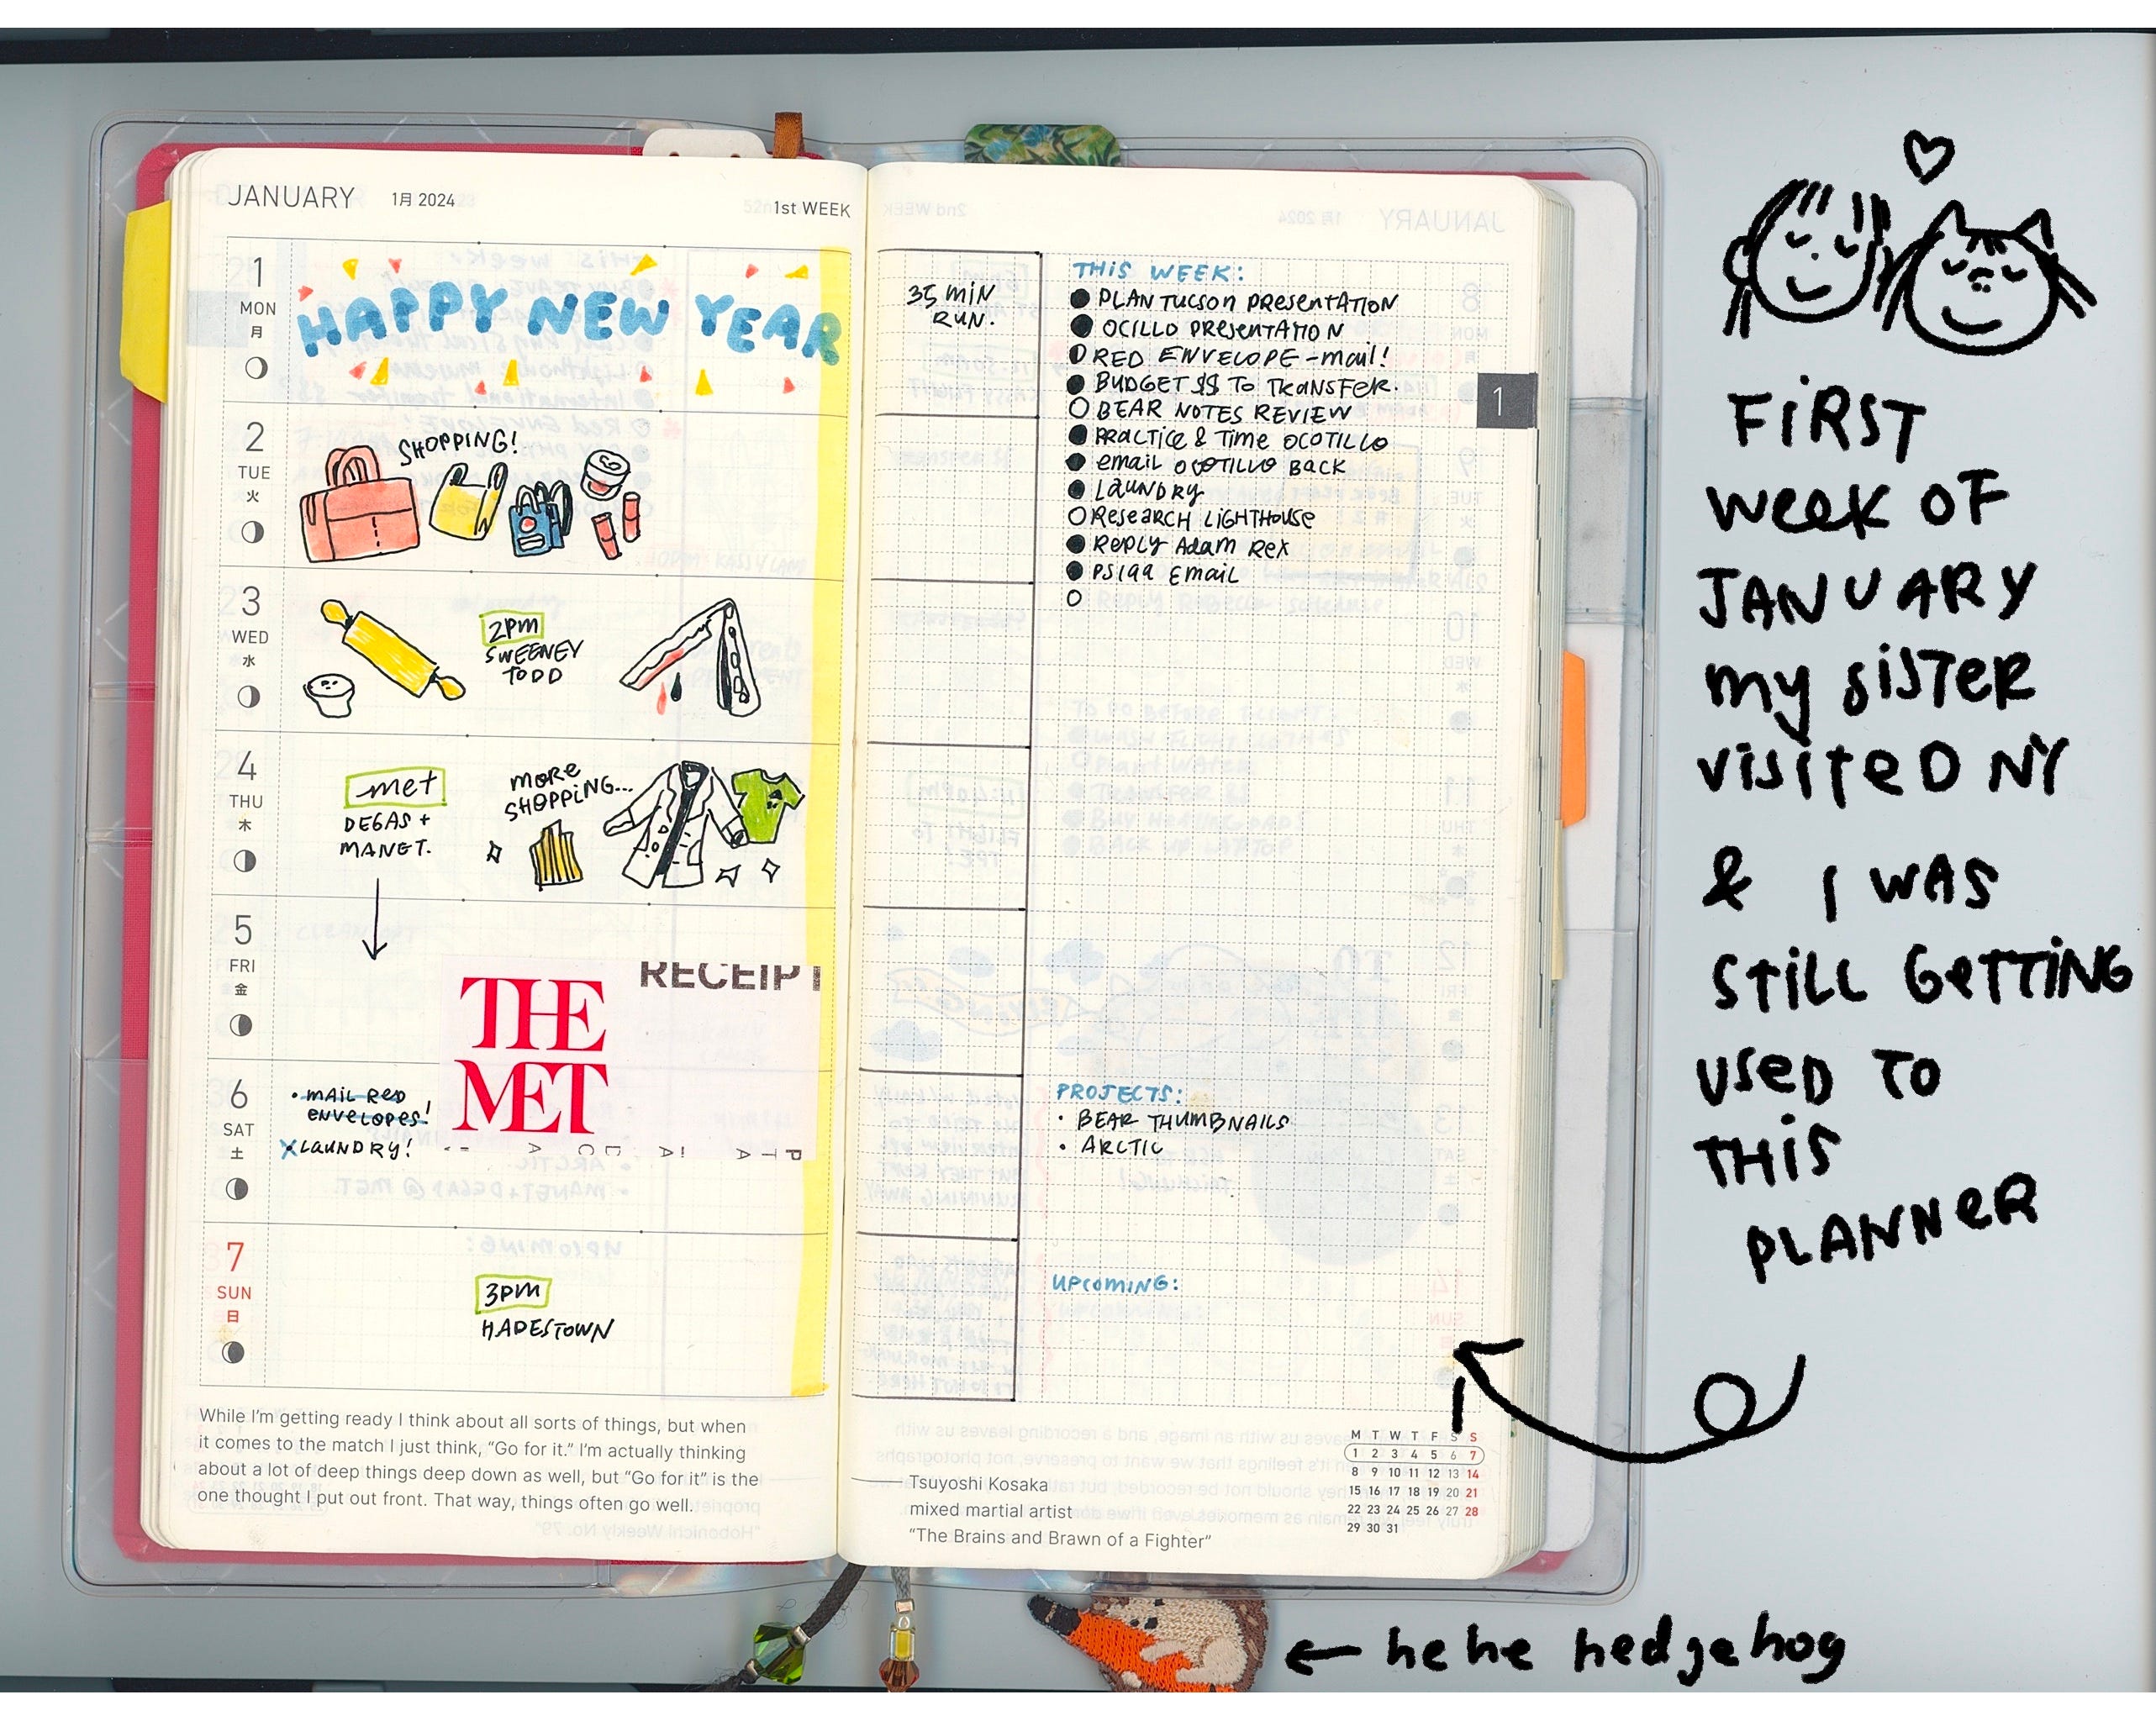 JANUARY 1月 2024
1st WEEK
1
MON
月
HAPPY NEW YEAR
2
TUE
火
SHOPPING!
3
WED
水
2PM
SWEENEY
TODD
4
THU
木
met
DEGAS +
MANET.
MORE
SHOPPING...
5
FRI
金
RECEIPT
THE
MET
6
SAT
土
• MAIL RED
ENVELOPES!
LAUNDRY!
7
SUN
日
3PM
HADESTOWN
While I'm getting ready I think about all sorts of things, but when
it comes to the match I just think, “Go for it.” I'm actually thinking
about a lot of deep things deep down as well, but “Go for it” is the
one thought I put out front. That way, things often go well.
35 MIN
RUN.
THIS WEEK:
PLAN TUCSON PRESENTATION
OCILLO PRESENTATION
RED ENVELOPE - mail!
BUDGET $$ TO TRANSFER.
BEAR NOTES REVIEW
PRACTICE & TIME OCOTILLO
email OCOTILLO BACK
LAUNDRY
RESEARCH LIGHTHOUSE
REPLY Adam REX
PS199 EMAIL
1
PROJECTS:
• BEAR THUMBNAILS
• ARCTIC
UPCOMING:
Tsuyoshi Kosaka
mixed martial artist
“The Brains and Brawn of a Fighter”
M T W T F S S
1 2 3 4 5 6 7
8 9 10 11 12 13 14
15 16 17 18 19 20 21
22 23 24 25 26 27 28
29 30 31
FIRST
WEEK OF
JANUARY
my SISTER
VISITED NY
& I WAS
STILL GETTING
USED TO
THIS
PLANNER
hehe hedgehog